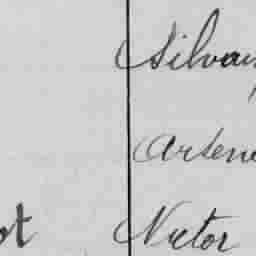 Silvain
Arsene
ot Victor